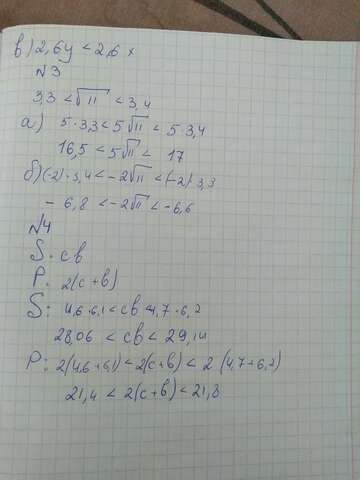 в) 2,6y < 2,6 x
N3
3,3 < √11 < 3,4
а) 5·3,3 < 5√11 < 5·3,4
16,5 < 5√11 < 17
б) (-2)·3,4 < -2√11 < (-2)·3,3
- 6,8 < -2√11 < -6,6
N4
S = cb
P = 2(c+b)
S: 4,6·6,1 < cb < 4,7·6,2
28,06 < cb < 29,14
P: 2(4,6+6,1) < 2(c+b) < 2·(4,7+6,2)
21,4 < 2(c+b) < 21,8